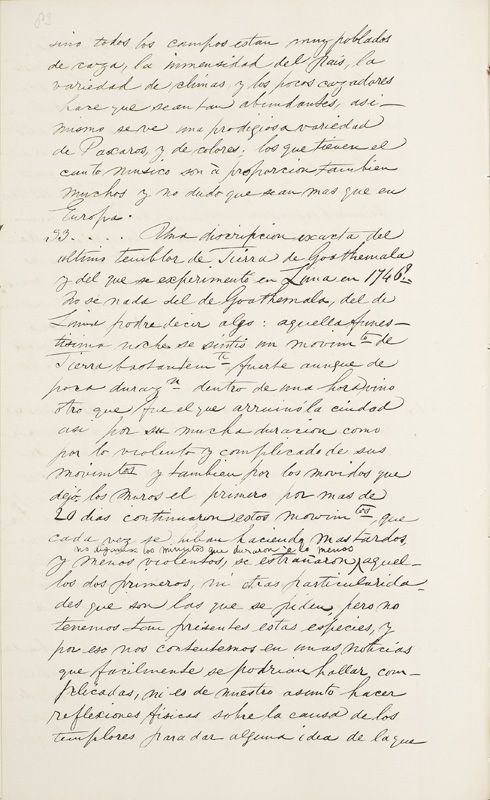 83
sino todos los campos estan muy poblados
de caza, la inmensidad del pais, la
variedad de climas, y los pocos cazadores
hace que sean tan abundantes, asi-
mismo se ve una prodigiosa variedad
de Paxaros, y de colores: los que tienen el
canto musico son à proporcion tambien
muchos y no dudo que sean mas que en
Europa.
93. . . . . Una discripcion exacta del
ultimo temblor de Tierra de Goathemala
y del que se experimento en Lima en 1746?
No se nada del de Goathemala, del de
Lima podre decir algo: aquella funes-
tisima noche se sintió un movim.to de
Tierra bastantem.te fuerte aunque de
poca duraz.n dentro de una hora vino
otro que fue el que arruinó la ciudad
asi por su mucha duracion como
por lo violento y complicado de sus
movimtos y tambien por los movidos que
dejó los muros el primero por mas de
20 dias continuaron estos movim.tos, que
cada vez se hiban haciendo mas tardos
no digamos los minutos que duraron à lo menos
y menos violentos, se estrañaron aquel-
los dos primeros, ni otras particularida-
des que son las que se piden, pero no
tenemos tan presentes estas especies, y
por eso nos contentemos en unas noticias
que facilmente se podrian hallar com-
plicadas, ni es de nuestro asunto hacer
reflexiones fisicas sobre la causa de los
templores para dar alguna idea de la que